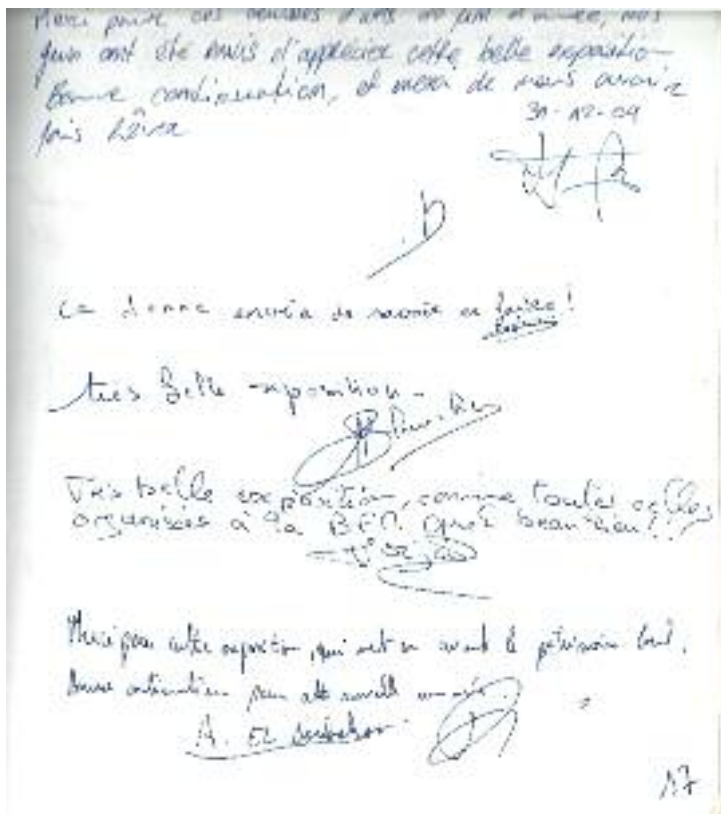 Merci pour ces de d'arts en fin d'année, nos
yeux ont été ravis d'apprécier cette belle exposition
Bonne continuation, et merci de nous avoir
fait rêver
31-12-09
ça donne envie de savoir en faire !
très belle exposition -
Très belle exposition, comme toutes celles
organisées à la Quel beau lieu !!
Merci pour cette exposition, qui met en avant le patrimoine local.
Bonne continuation pour cette nouvelle année
A. El
17